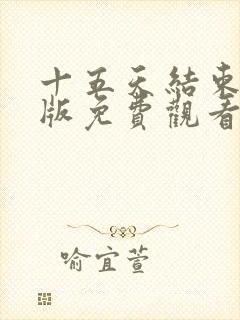 十五天結束
版免費觀看
喻宜萱